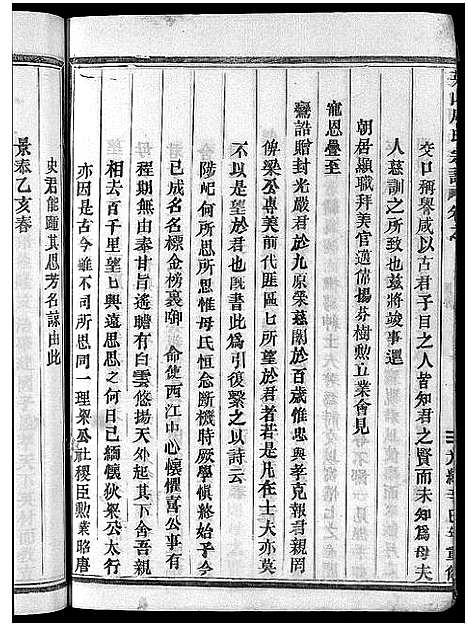 交口稱譽咸以古君子目之人皆知君之賢而未知爲母夫
人慈訓之所致也茲將竣事還
朝居顯職拜美官邁偉揚芬樹勲立業會見
寵恩疊至
鸞誥賵封光嚴君於九原榮慈闈於百歲惟忠與孝克報君親罔
俾梁公專美前代匪区匕所望於君者若是凡在士大亦莫
不以是望於君也旣書此爲引復繫之以詩云
陟屺何所思所思惟母氏恒念斷機時厥學愼終始子今
已成名名標金榜裏啣 命使西江中心懷懼喜公事有
程期無由奉甘旨遙瞻有白雲悠揚天外起其下舍吾親
相去百千里望匕興遠思思之何日已緬懷狄梁公太行
亦因是古今雖不同所思同一理梁公社稷臣勲業昭唐
史君能踵其思芳名諒由此
景泰乙亥春
氏宗譜
光緒辛巳年重修